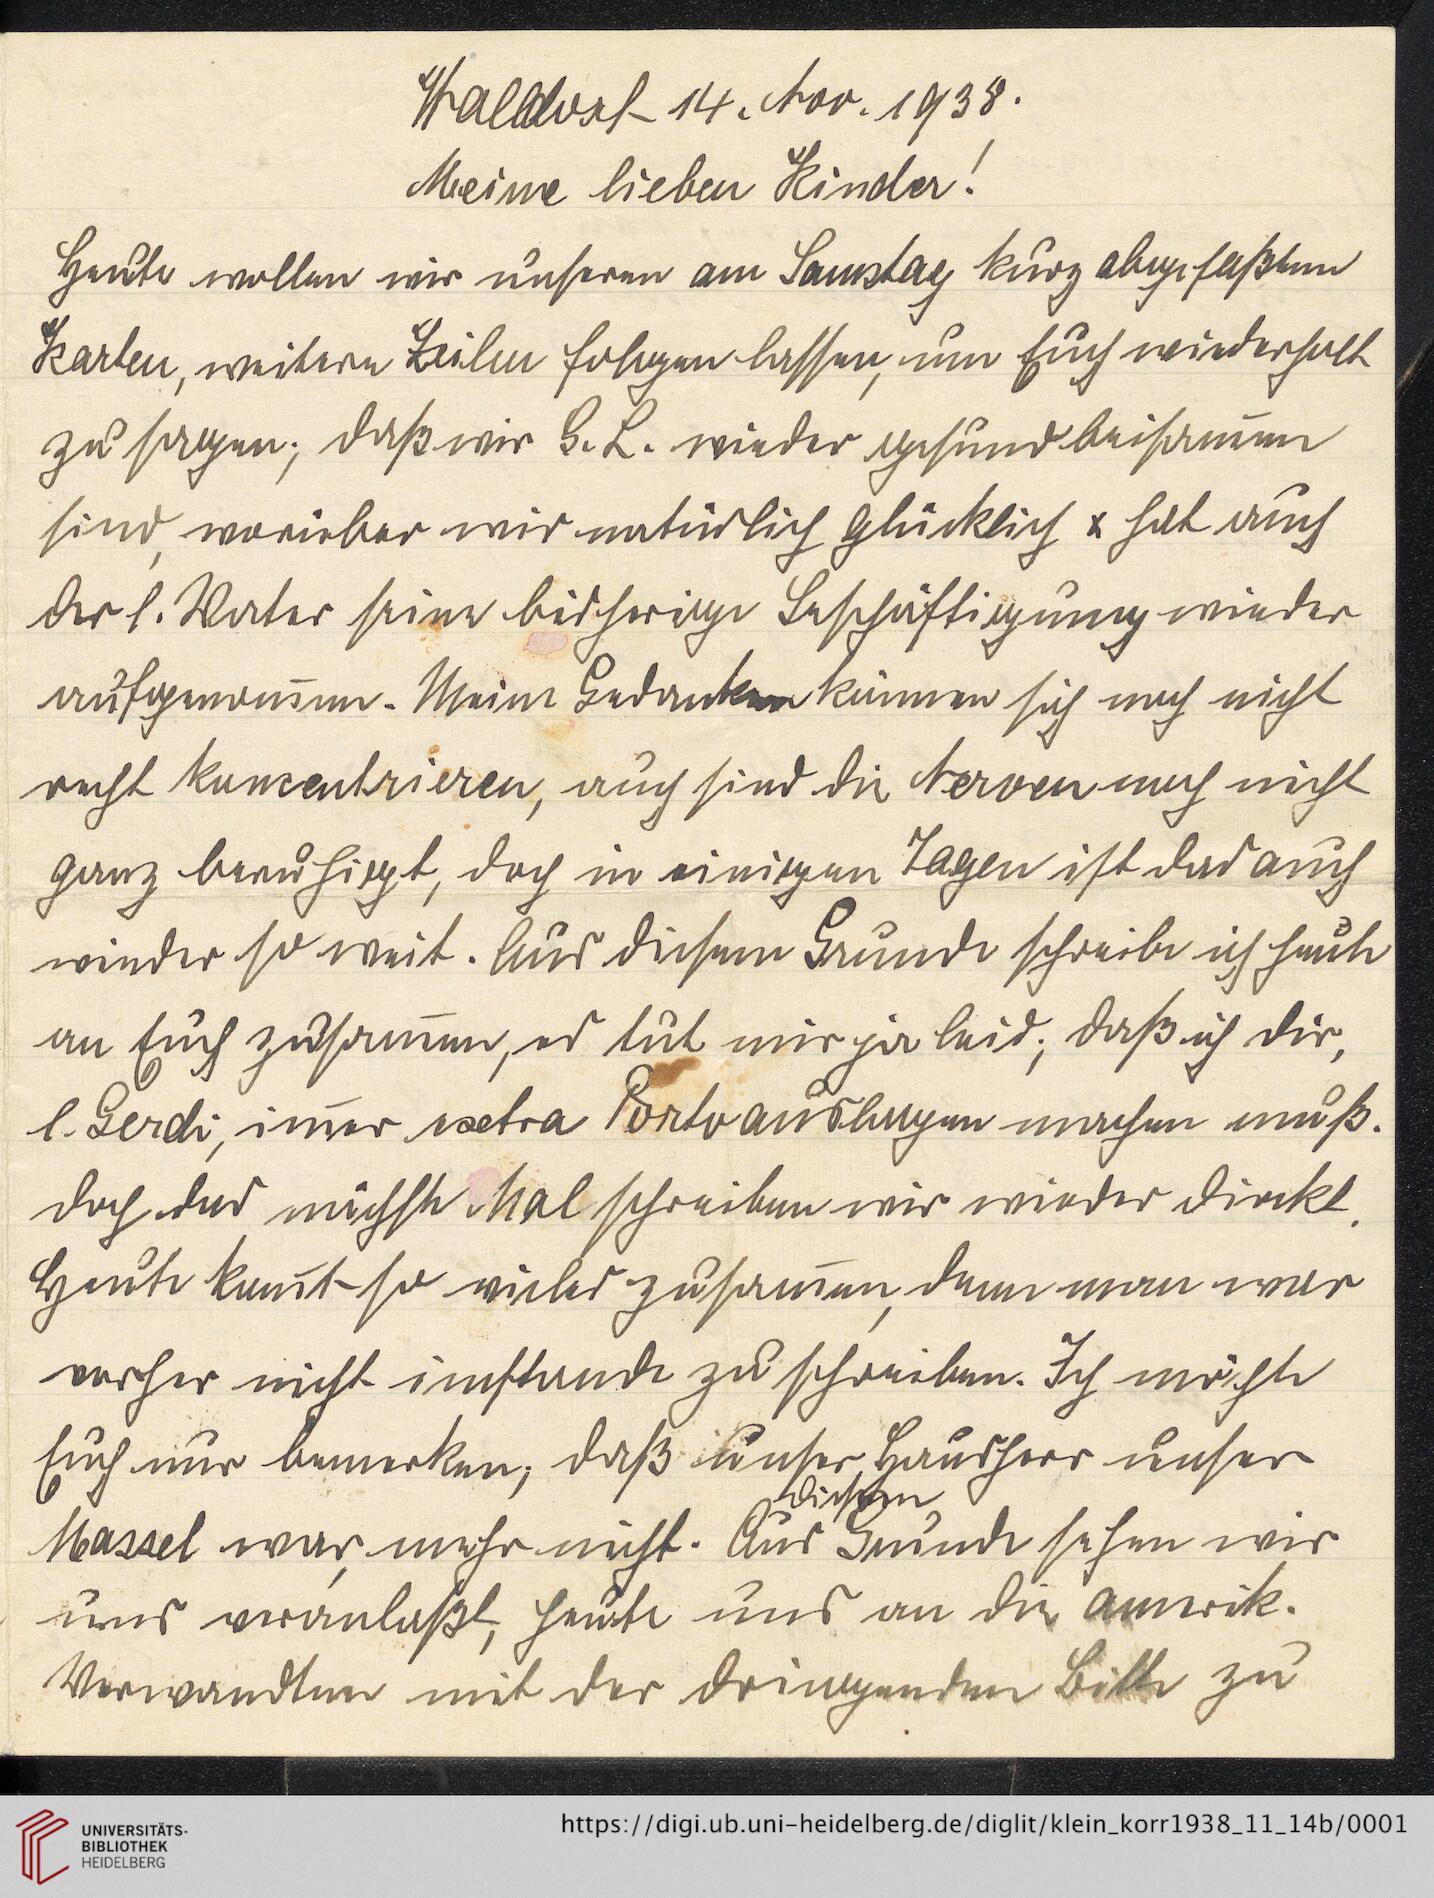 Walldorf 14. Nov. 1938.
Meine lieben Kinder!
Heute wollen wir unseren am Samstag kurz abgefaßten
Karten, weitere Zeilen folgen lassen, um Euch wiederholt
zu sagen; daß wir G. L. wieder gesund beisam̄en
sind, worüber wir natürlich glücklich & hat auch
der l. Vater seine bisherige Beschäftigung wieder
aufgenom̄en. Meine Gedanken können sich noch nicht
recht konzentrieren, auch sind die Nerven noch nicht
ganz beruhigt, doch in einigen Tagen ist das auch
wieder so weit. Aus diesem Grunde schreibe ich heute
an Euch zusam̄en, es tut mir ja leid; daß ich dir,
l. Gerdi, im̄er extra Portoauslagen machen muß.
doch das nächste Mal schreiben wir wieder direkt.
Heute kom̄t so vieles zusam̄en, denn man war
vorher nicht imstande zu schreiben. Ich möchte
Euch nur bemerken; daß unser Hausherr unser
Massel war, mehr nicht. Aus diesem Grunde sehen wir
uns veranlaßt, heute uns an die amerik.
Verwandten mit der dringenden Bitte zu
UNIVERSITÄTS-
BIBLIOTHEK
HEIDELBERG
https://digi.ub.uni-heidelberg.de/diglit/klein_korr1938_11_14b/0001